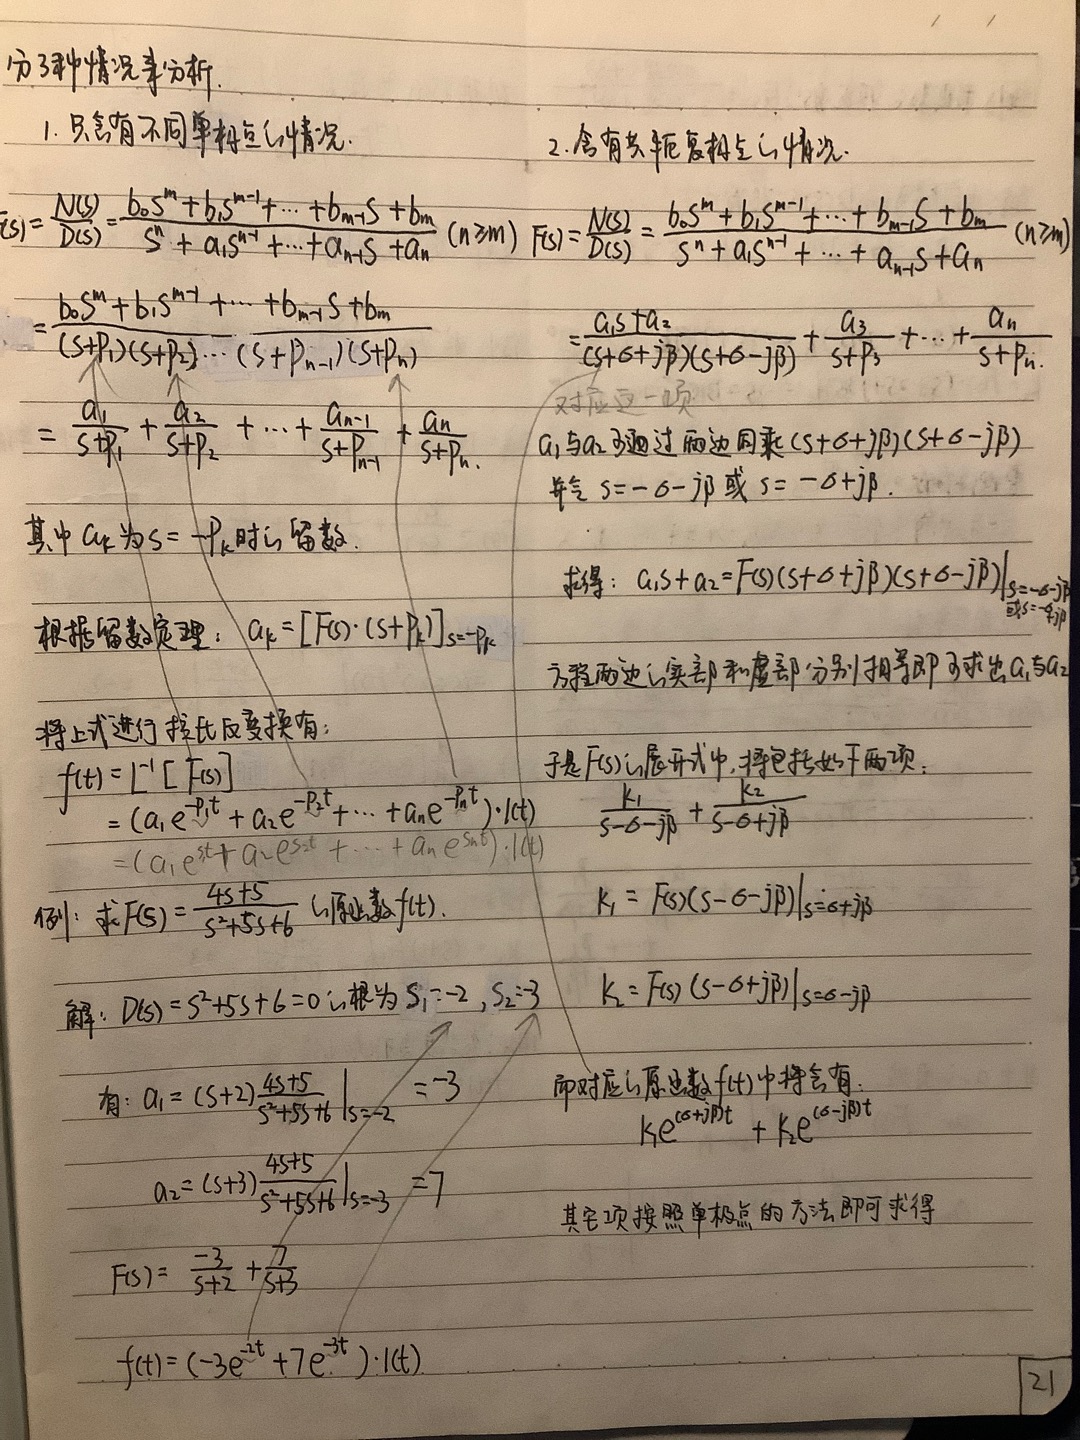 分3种情况来分析.
1. 只含有不同单极点的情况.
F(s) = N(s)/D(s) = (b₀s^m + b₁s^(m-1) + ⋯ + b_(m-1)s + b_m)/(s^n + a₁s^(n-1) + ⋯ + a_(n-1)s + a_n) (n≥m)
= (b₀s^m + b₁s^(m-1) + ⋯ + b_(m-1)s + b_m)/((s+p₁)(s+p₂)⋯(s+p_(n-1))(s+p_n))
= a₁/(s+p₁) + a₂/(s+p₂) + ⋯ + a_(n-1)/(s+p_(n-1)) + a_n/(s+p_n).
其中 a_k 为 s = -p_k 时的留数.
根据留数定理: a_k = [F(s)·(s+p_k)]_(s=-p_k)
将上式进行拉氏反变换有:
f(t) = L⁻¹[F(s)]
= (a₁e^(-p₁t) + a₂e^(-p₂t) + ⋯ + a_ne^(-p_nt))·1(t)
= (a₁e^(st) + a₂e^(s₂t) + ⋯ + a_ne^(s_nt))·1(t)
例: 求F(s) = (4s+5)/(s²+5s+6) 的原函数f(t).
解: D(s) = s²+5s+6 = 0 的根为 s₁=-2, s₂=-3
有: a₁ = (s+2) (4s+5)/(s²+5s+6) |_(s=-2) = -3
a₂ = (s+3) (4s+5)/(s²+5s+6) |_(s=-3) = 7
F(s) = -3/(s+2) + 7/(s+3)
f(t) = (-3e^(-2t) + 7e^(-3t))·1(t)
2. 含有共轭复极点的情况.
F(s) = N(s)/D(s) = (b₀s^m + b₁s^(m-1) + ⋯ + b_(m-1)s + b_m)/(s^n + a₁s^(n-1) + ⋯ + a_(n-1)s + a_n) (n≥m)
= (a₁s+a₂)/((s+σ+jβ)(s+σ-jβ)) + a₃/(s+p₃) + ⋯ + a_n/(s+p_n).
对应这一项
a₁与a₂可通过两边同乘(s+σ+jβ)(s+σ-jβ)
并令 s = -σ-jβ 或 s = -σ+jβ.
求得: a₁s+a₂ = F(s)(s+σ+jβ)(s+σ-jβ)|_(s=-σ-jβ
或s=-σ+jβ)
方程两边的实部和虚部分别相等即可求出a₁与a₂
于是F(s)的展开式中,将包括如下两项:
k₁/(s-σ-jβ) + k₂/(s-σ+jβ)
k₁ = F(s)(s-σ-jβ)|_(s=σ+jβ)
k₂ = F(s)(s-σ+jβ)|_(s=σ-jβ)
而对应的原函数f(t)中将含有:
k₁e^((σ+jβ)t) + k₂e^((σ-jβ)t)
其它项按照单极点的方法即可求得
21